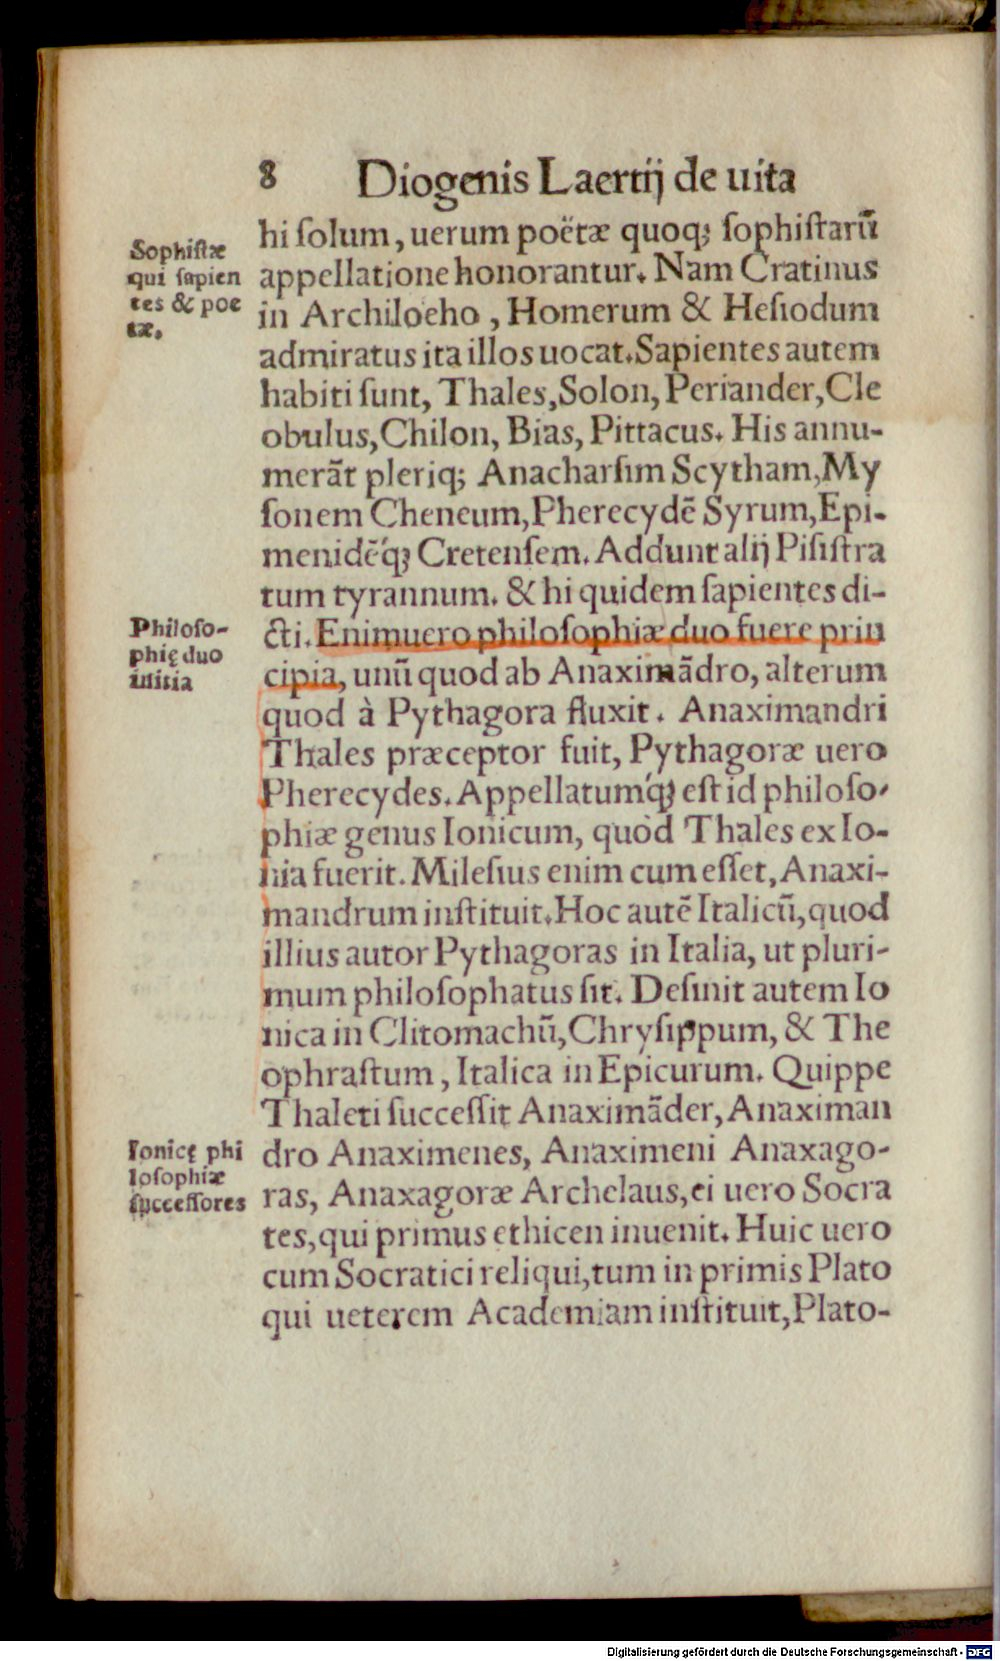 8 Diogenis Laertij de uita
Sophistæ
qui sapien
tes & poe
tæ.
hi solum, uerum poëtæ quoq; sophistarũ
appellatione honorantur. Nam Cratinus
in Archiloeho, Homerum & Hesiodum
admiratus ita illos uocat. Sapientes autem
habiti sunt, Thales, Solon, Periander, Cle
obulus, Chilon, Bias, Pittacus. His annu-
merãt pleriq; Anacharsim Scytham, My
sonem Cheneum, Pherecydẽ Syrum, Epi-
menidẽq́; Cretensem. Addunt alij Pisistra
tum tyrannum. & hi quidem sapientes di-
Philoso-
phię duo
initia
cti. Enimuero philosophiæ duo fuere prin
cipia, unũ quod ab Anaximãdro, alterum
quod à Pythagora fluxit. Anaximandri
Thales præceptor fuit, Pythagoræ uero
Pherecydes. Appellatumq́; est id philoso-
phiæ genus Ionicum, quòd Thales ex Io-
nia fuerit. Milesius enim cum esset, Anaxi-
mandrum instituit. Hoc autẽ Italicũ, quod
illius autor Pythagoras in Italia, ut pluri-
mum philosophatus sit. Desinit autem Io
nica in Clitomachũ, Chrysippum, & The
ophrastum, Italica in Epicurum. Quippe
Thaleti successit Anaximãder, Anaximan
Ionicę phi
losophiæ
successores
dro Anaximenes, Anaximeni Anaxago-
ras, Anaxagoræ Archelaus, ei uero Socra
tes, qui primus ethicen inuenit. Huic uero
cum Socratici reliqui, tum in primis Plato
qui ueterem Academiam instituit, Plato-
Digitalisierung gefördert durch die Deutsche Forschungsgemeinschaft - DFG